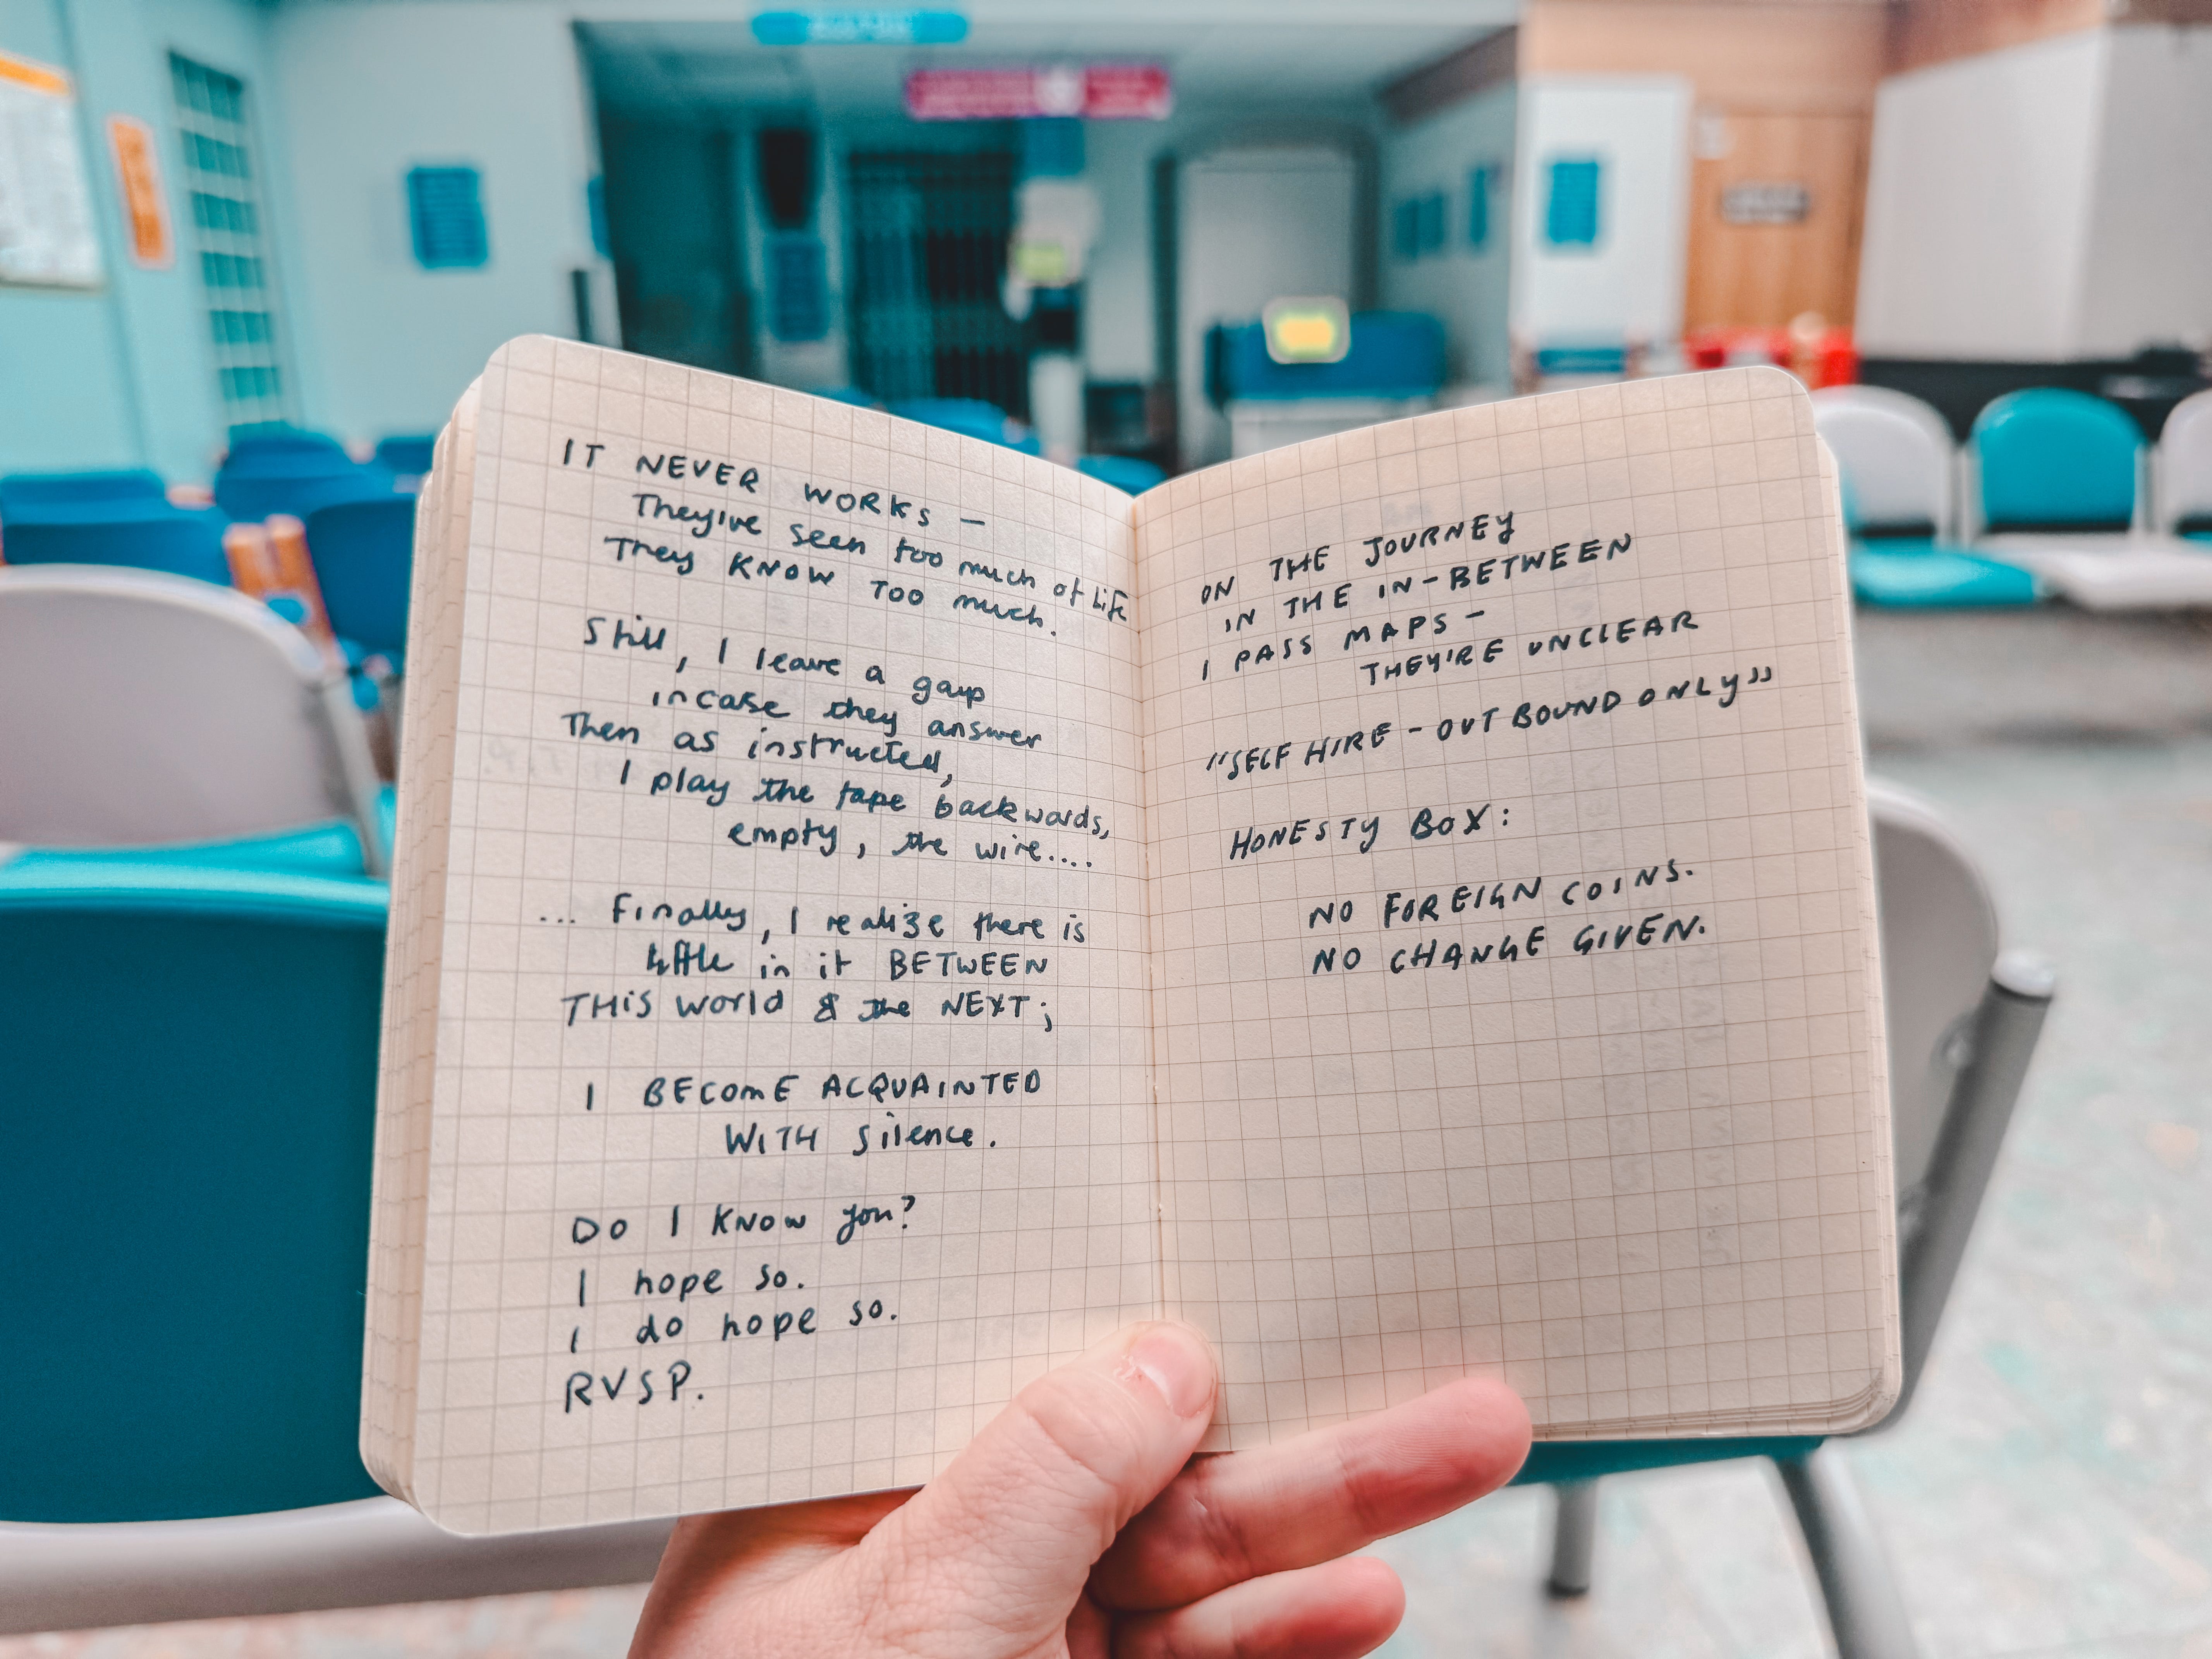 IT NEVER WORKS –
They'ive seen too much of life
They KNOW TOO much.
Still, I leave a gap
incase they answer
Then as instructed,
I play the tape backwards,
empty, the wire....
... Finally, I realize there is
little in it BETWEEN
THIS world & the NEXT;
I BECOME ACQUAINTED
WITH silence.
DO I KNOW you?
I hope so.
I do hope so.
RVSP.
ON THE JOURNEY
IN THE IN-BETWEEN
I PASS MAPS –
THEY'RE UNCLEAR
"SELF HIRE - OUT BOUND ONLY"
HONESTY BOX:
NO FOREIGN COINS.
NO CHANGE GIVEN.